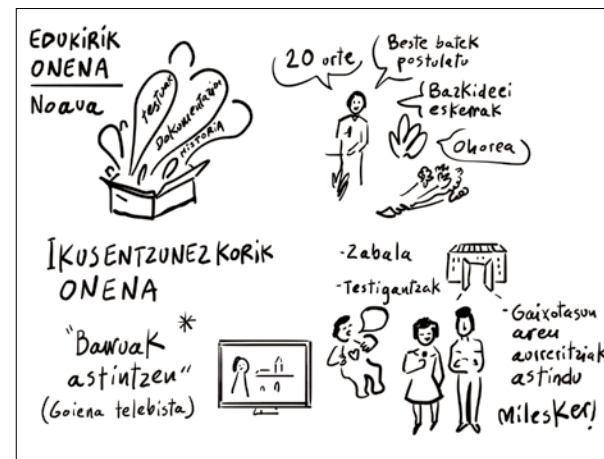 EDUKIRIK
ONENA
Noaua
testuak
Dokumentazioa
HISTORIA
20 urte
Beste batek
postulatu
Bazkideei
eskerrak
Ohorea
IKUSENTZUNEZKORIK
ONENA
"Barruak *
astintzen"
(Goiena telebista)
-Zabala
-Testigantzak
-Gaixotasun
aren
aurreritziak
astindu
Milesker!